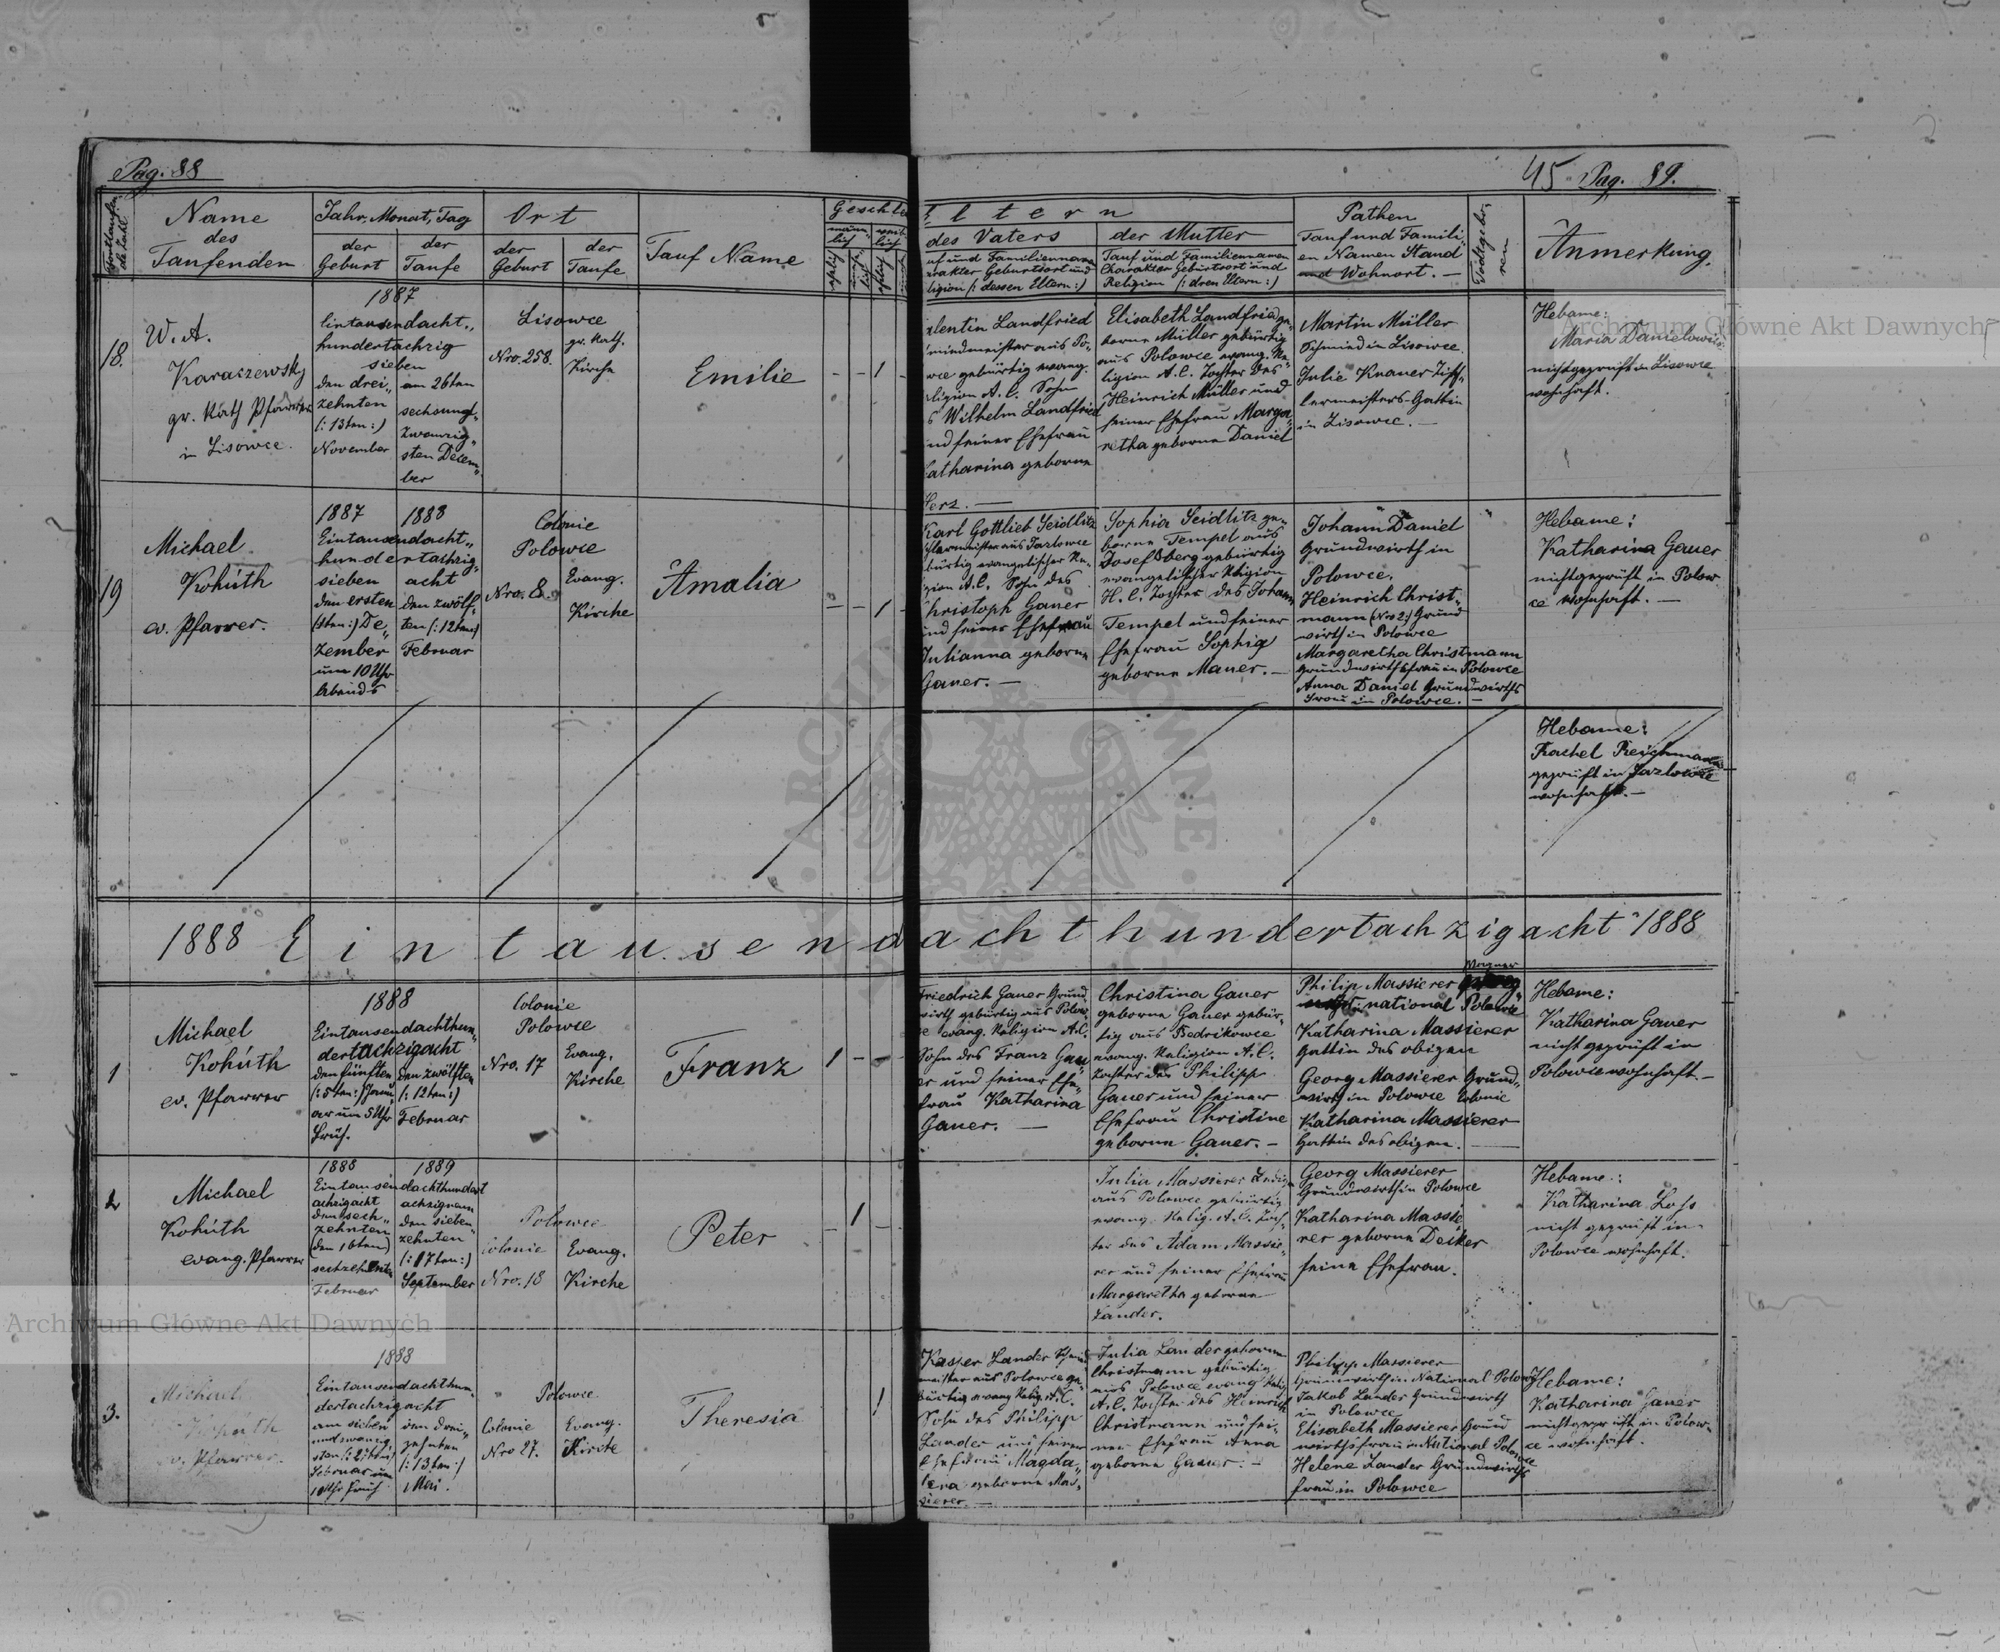 Pag. 88
45 Pag. 89.
Name
des
Taufenden
Jahr, Monat, Tag
der
Geburt
der
Taufe
Ort
der
Geburt
der
Taufe
Tauf Name
Geschle
männ
lich
weib
lich
ltern
des Vaters
der Mutter
Tauf und Familiennamen
Charakter Geburtsort und
Religion (: dren Eltern :)
Pathen
Tauf und Famili-
en Namen Stand
und Wohnort. —
Todtgebo-
ren
Anmerkung.
18.
W. A.
Karaszewsky
gr. Kath Pfarrer
in Lisowce.
1887
hundertachzig
sieben
den drei-
zehnten
(: 13ten :)
November
am 26ten
sechsund-
zwanzig-
sten Decem-
ber
Lisowce
Nro. 258.
gr. Kath.
Kirche
Emilie
- - 1 -
lentin Landfried
miedmeister aus Po-
wce gebürtig evang.
ligion A. C. Sohn
s Wilhelm Landfried
nd seiner Ehefrau
atharina geborne
Herz. —
Elisabeth Landfried ge-
borne Müller gebürtig
aus Polowce evang. Re-
ligion A. C. Tochter des
Heinrich Müller und
seiner Ehefrau Marga-
retha geborne Daniel
Martin Müller
Schmied in Lisowce.
Julie Knauer Tisch-
lermeisters Gattin
in Lisowce. —
Hebame:
Maria Danielowicz
nichtgeprüft in Lisowce
wohnhaft.
19
Michael
Kohúth
ev. Pfarrer.
1887 1888
Eintausendacht-
hundertachzig-
sieben acht
den ersten
(1ten :) De-
zember
um 10 Uhr
Abends
den zwölf-
ten (: 12ten)
Februar
Colonie
Polowce
Nro. 8
Evang.
Kirche
Amalia
- - 1 -
Karl Gottlieb Seidlitz
aus Jazlowce
bürtig evangelischer Re-
gion A. C. Sohn des
Christoph Gauer
und seiner Ehefrau
Julianna geborne
Gauer. —
Sophia Seidlitz ge-
borne Tempel aus
Josefsberg gebürtig
evangelischer Religion
H. C. Tochter des Johann
Tempel und seiner
Ehefrau Sophia
geborne Mauer. —
Johann Daniel
Grundwirth in
Polowce.
Heinrich Christ-
mann (Nro 2) Grund
wirth in Polowce
Margaretha Christmann
Grundwirthsfrau in Polowce
Anna Daniel Grundwirths
Frau in Polowce. —
Hebame:
Katharina Gauer
nichtgeprüft in Polow-
ce wohnhaft. —
Hebame:
Rachel Reichmann
geprüft in Jazlowce
wohnhaft. —
1888 Eintausendachthundertachzigacht 1888
1
Michael
Kohúth
ev. Pfarrer
1888
Eintausendachthun-
dertachzigacht
den fünften
(: 5ten :) Janu
ar um 5 Uhr
Früh.
den zwölften
(: 12ten :)
Februar
Colonie
Polowce
Nro. 17
Evang.
Kirche
Franz
1 - - -
Friedrich Gauer Grund
wirth gebürtig aus Polow-
ce evang. Religion A. C.
Sohn des Franz Gau-
er und seiner Ehe-
frau Katharina
Gauer. —
Christina Gauer
geborne Gauer gebür-
tig aus Bedrikowce
evang. Religion A. C.
Tochter des Philipp
Gauer und seiner
Ehefrau Christine
geborne Gauer. —
Philip Massierer Wagner
national Polowce
Katharina Massierer
Gattin des obigen
Georg Massierer Grund-
wirth in Polowce Colonie
Katharina Massierer
Gattin des obigen. —
Hebame:
Katharina Gauer
nicht geprüft in
Polowce wohnhaft. —
2
Michael
Kohúth
evang. Pfarrer
1888 1889
Eintausendachthundert
achzigacht achzigneun
den sech-
zehnten
(den 16ten)
Februar
den sieben-
zehnten
(: 17ten :)
September
Polowce
Colonie
Nro. 18
Evang.
Kirche
Peter
- 1 -
Julia Massierer
aus Polowce gebürtig
evang. Relig. A. C. Toch-
ter des Adam Massie-
rer und seiner Ehefrau
Margaretha geborne
Lander.
Georg Massierer
Grundwirth in Polowce
Katharina Massie
rer geborne Decker
seine Ehefrau.
Hebame:
Katharina Loss
nicht geprüft in
Polowce wohnhaft.
3.
Michael
Kohúth
ev. Pfarrer.
1888
Eintausendachthun-
dertachzigacht
am sieben
undzwanzig
sten (: 27ten :)
Februar um
Uhr Früh
den drei-
zehnten
(: 13ten :)
Mai.
Polowce
Colonie
Nro 27.
Evang.
Kirche
Theresia
1
Kasper Lander
meister aus Polowce ge-
bürtig evang Relig. A. C.
Sohn des Philipp
Lander und seiner
Ehefrau Magda-
lena geborne Mas-
sierer. —
Julia Lander geborne
Christmann gebürtig
aus Polowce evang Relig
A. C. Tochter des Heinrich
Christmann und sei-
ner Ehefrau Anna
geborne Gauer. —
Philipp Massierer
Grundwirth in National Polowce
Jakob Lander Grundwirth
in Polowce
Elisabeth Massierer Grund
wirthsfrau in National Polowce
Helene Lander Grundwirths
frau in Polowce
Hebame:
Katharina Gauer
nichtgeprüft in Polow-
ce wohnhaft.
Archiwum Główne Akt Dawnych
Archiwum Główne Akt Dawnych